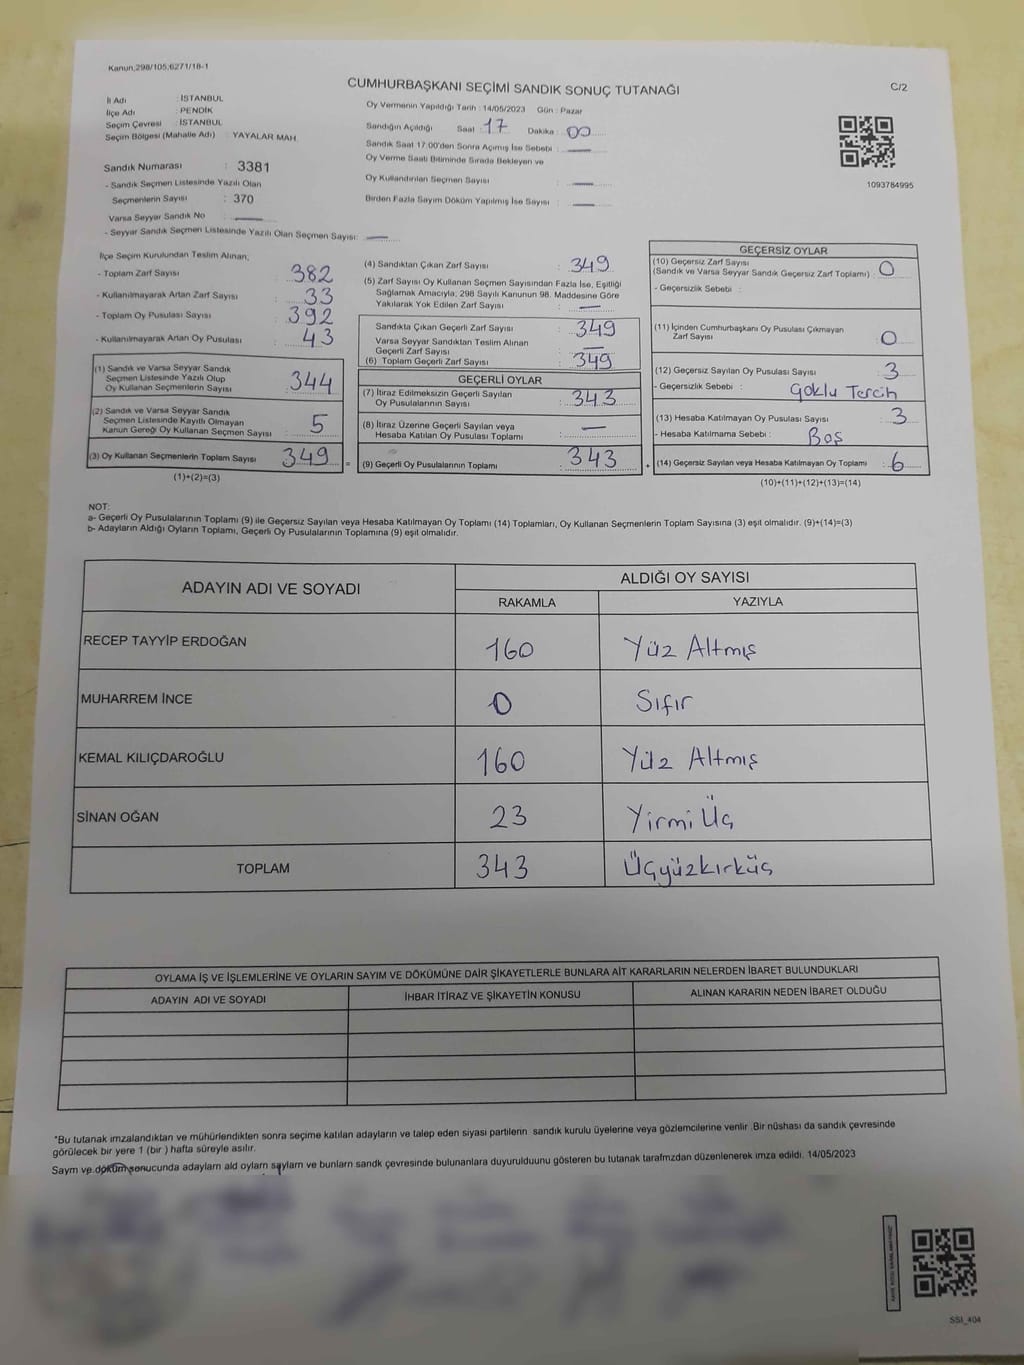 Kanun,298/105,6271/18-1
CUMHURBAŞKANI SEÇİMİ SANDIK SONUÇ TUTANAĞI
C/2
İl Adı : İSTANBUL
İlçe Adı : PENDİK
Seçim Çevresi : İSTANBUL
Seçim Bölgesi (Mahalle Adı) : YAYALAR MAH.
Oy Vermenin Yapıldığı Tarih : 14/05/2023 Gün : Pazar
Sandığın Açıldığı Saat : 17 Dakika : 00
Sandık Saat 17:00'den Sonra Açımış İse Sebebi : —
Oy Verme Saati Bitiminde Sırada Bekleyen ve
Oy Kullandırılan Seçmen Sayısı : —
Birden Fazla Sayım Döküm Yapılmış İse Sayısı : —
1093784995
Sandık Numarası : 3381
- Sandık Seçmen Listesinde Yazılı Olan
Seçmenlerin Sayısı : 370
Varsa Seyyar Sandık No : —
- Seyyar Sandık Seçmen Listesinde Yazılı Olan Seçmen Sayısı: —
İlçe Seçim Kurulundan Teslim Alınan;
- Toplam Zarf Sayısı : 382
- Kullanılmayarak Artan Zarf Sayısı : 33
- Toplam Oy Pusulası Sayısı : 392
- Kullanılmayarak Artan Oy Pusulası : 43
(1) Sandık ve Varsa Seyyar Sandık
Seçmen Listesinde Yazılı Olup
Oy Kullanan Seçmenlerin Sayısı : 344
(2) Sandık ve Varsa Seyyar Sandık
Seçmen Listesinde Kayıtlı Olmayan
Kanun Gereği Oy Kullanan Seçmen Sayısı : 5
(3) Oy Kullanan Seçmenlerin Toplam Sayısı : 349 =
(1)+(2)=(3)
(4) Sandıktan Çıkan Zarf Sayısı : 349
(5) Zarf Sayısı Oy Kullanan Seçmen Sayısından Fazla İse, Eşitliği
Sağlamak Amacıyla; 298 Sayılı Kanunun 98. Maddesine Göre
Yakılarak Yok Edilen Zarf Sayısı : —
Sandıkta Çıkan Geçerli Zarf Sayısı : 349
Varsa Seyyar Sandıktan Teslim Alınan
Geçerli Zarf Sayısı : —
(6) Toplam Geçerli Zarf Sayısı : 349
GEÇERLİ OYLAR
(7) İtiraz Edilmeksizin Geçerli Sayılan
Oy Pusulalarının Sayısı : 343
(8) İtiraz Üzerine Geçerli Sayılan veya
Hesaba Katılan Oy Pusulası Toplamı : —
(9) Geçerli Oy Pusulalarının Toplamı : 343 +
GEÇERSİZ OYLAR
(10) Geçersiz Zarf Sayısı
(Sandık ve Varsa Seyyar Sandık Geçersiz Zarf Toplamı) : 0
- Geçersizlik Sebebi :
(11) İçinden Cumhurbaşkanı Oy Pusulası Çıkmayan
Zarf Sayısı : 0
(12) Geçersiz Sayılan Oy Pusulası Sayısı : 3
- Geçersizlik Sebebi : Çoklu Tercih
(13) Hesaba Katılmayan Oy Pusulası Sayısı : 3
- Hesaba Katılmama Sebebi : Boş
(14) Geçersiz Sayılan veya Hesaba Katılmayan Oy Toplamı : 6
(10)+(11)+(12)+(13)=(14)
NOT:
a- Geçerli Oy Pusulalarının Toplamı (9) ile Geçersiz Sayılan veya Hesaba Katılmayan Oy Toplamı (14) Toplamları, Oy Kullanan Seçmenlerin Toplam Sayısına (3) eşit olmalıdır. (9)+(14)=(3)
b- Adayların Aldığı Oyların Toplamı, Geçerli Oy Pusulalarının Toplamına (9) eşit olmalıdır.
ADAYIN ADI VE SOYADI
ALDIĞI OY SAYISI
RAKAMLA YAZIYLA
RECEP TAYYİP ERDOĞAN 160 Yüz Altmış
MUHARREM İNCE 0 Sıfır
KEMAL KILIÇDAROĞLU 160 Yüz Altmış
SİNAN OĞAN 23 Yirmi Üç
TOPLAM 343 Üçyüzkırküç
OYLAMA İŞ VE İŞLEMLERİNE VE OYLARIN SAYIM VE DÖKÜMÜNE DAİR ŞİKAYETLERLE BUNLARA AİT KARARLARIN NELERDEN İBARET BULUNDUKLARI
ADAYIN ADI VE SOYADI İHBAR İTİRAZ VE ŞİKAYETİN KONUSU ALINAN KARARIN NEDEN İBARET OLDUĞU
*Bu tutanak imzalandıktan ve mühürlendikten sonra seçime katılan adayların ve talep eden siyasi partilerin sandık kurulu üyelerine veya gözlemcilerine verilir .Bir nüshası da sandık çevresinde
görülecek bir yere 1 (bir ) hafta süreyle asılır.
Saym ve döküm sonucunda adaylarn ald oylarn saylarn ve bunlarn sandk çevresinde bulunanlara duyurulduunu gösteren bu tutanak tarafmzdan düzenlenerek imza edildi. 14/05/2023
SSI_404